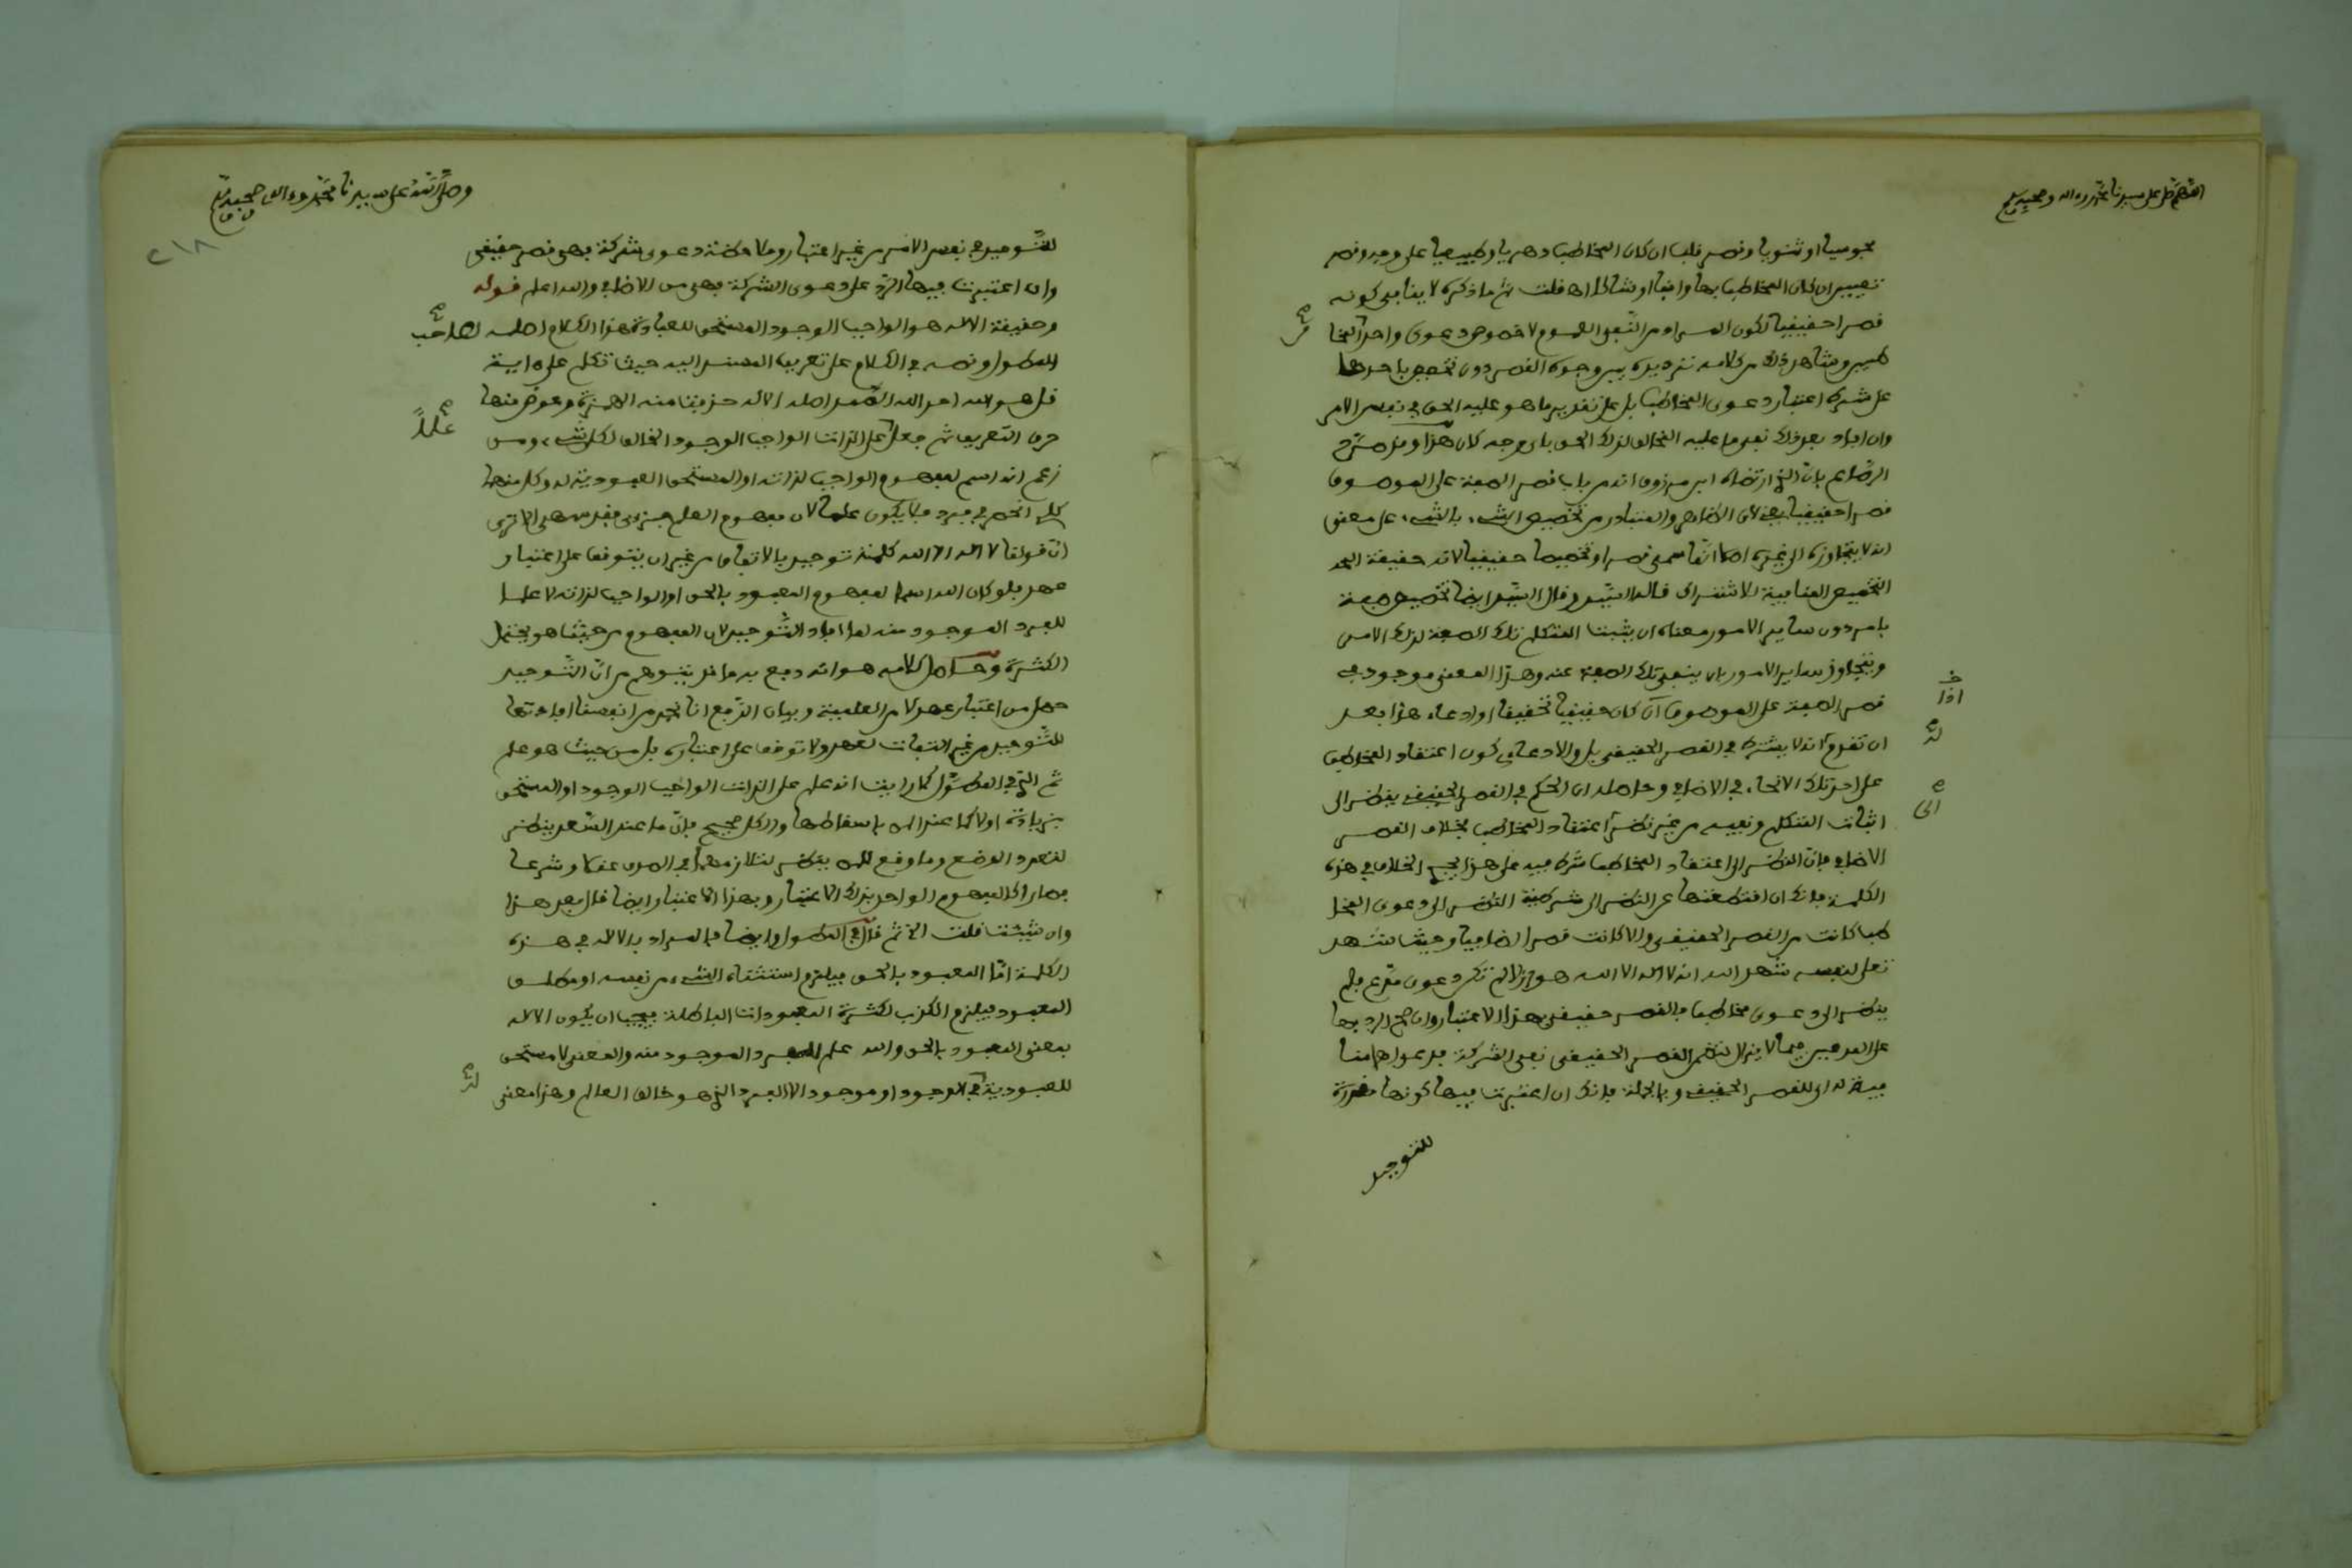 اللهم صل على سيدنا محمد وءاله وصحبه وسلم
مجوسيا او ثنويا وقصر قلب ان كان المخاطب دهريا وطبيعيا على وجه وقصر
تعيين ان كان المخاطب بها واقبا او شاكا اه قلت ثم ما ذكره لا ينافي كونه
قصرا حقيقيا لكون المراد من النفي العموم لا خصوص دعوى واحد المخا
طبين ومشاهد ذلك من كلامه ترديده بين وجوه القصر دون تخصيص باحدها
على شرط اعتبار دعوى المخاطب بل على تقدير ما هو عليه الحق في نفس الامر
وان افاد بعد ذلك نفي ما عليه المخالف لذلك الحق باي وجه كان هذا وقد صرح
الرصاع بان الذي ارتضاه ابن مرزوق انه من باب قصر الصفة على الموصوف
قصرا حقيقيا يعني لان الظاهر والمتبادر من تخصيص الشيء بالشيء على معنى
انه لا يتجاوزه الى غيره اصلا انما سمي قصرا وتخصيصا حقيقيا لانه حقيقة
التخصيص المنافية للاشتراك قاله السيد وقال السيد ايضا تخصيص صفة
بامر دون ساير الامور معناه ان يثبت المتكلم تلك الصفة لذلك الامر
ويتجاوز ساير الامور بان ينفي تلك الصفة عنه وهذا المعنى موجود في
قصر الصفة على الموصوف ان كان حقيقيا تحقيقا او ادعاء هذا بعد
اذا
ان تقرر انه لا يشترط في القصر الحقيقي بل والادعائي كون اعتقاد المخاطب
على احد تلك الانحاء في الاضافي وحاصله ان الحكم في القصر الحقيقي ينظر الى
الى
اثبات المتكلم ونفيه من غير نظر اعتقاد المخاطب بخلاف القصر
الاضافي فان النظر الى اعتقاد المخاطب شرط فيه فعلى هذا يجيء الخلاف في هذه
الكلمة فانك ان اقتطعتها عن النظر الى شرطية النظر الى دعوى المخا
طب كانت من القصر الحقيقي والا كانت قصرا اضافيا وحيث شهد
تعلى لنفسه شهد الله انه لا اله الا الله هو اذ لم تكن دعوى مدع فلم
ينظر الى دعوى مخاطب فالقصر حقيقي بهذا الاعتبار وان صح الرد بها
على المدعين فيما لا يزال لتضمن القصر الحقيقي نفي الشركة فدعواهم
فية له اي للقصر الحقيقي وبالجملة فانك ان اعتبرت فيها كونها مقررة
للتوحيد
وصلى الله على سيدنا محمد وءاله وصحبه وسلم
٢١٨
للتوحيد في نفس الامر من غير اعتبار وملاحظة دعوى شركة فهي قصر حقيقي
وان اعتبرت فيها الرد على دعوى الشركة فهي من الاضافي والله اعلم قوله
وحقيقة الاله هو الواجب الوجود المستحق للعبادة هذا الكلام اصله لصاحب
المطول ونصه في الكلام على تعريف المسند اليه حيث تكلم على ءاية
قل هو الله احد الله اصله الالاه حذفت منه الهمزة وعوض منها
علما
حرف التعريف ثم جعل على الذات الواجب الوجود الخالق لكل شيء ومن
زعم انه اسم لمفهوم الواجب لذاته او المستحق العبودية له وكل منهما
كلي انحصر في فرد فلا يكون علما لان مفهوم العلم جزءي فقد سهى الا ترى
ان قولنا لا اله الا الله كلمة توحيد بالاتفاق من غير ان يتوقف على اعتبار
عهد فلو كان الله اسما لمفهوم المعبود بالحق او الواجب لذاته لا علما
للفرد الموجود منه لما افاد التوحيد لان المفهوم من حيث هو يحتمل
الكثرة وحاصل كلامه هو انه دفع به ما قد يتوهم من ان التوحيد
حصل من اعتبار عهد لا من العلمية وبيان الدفع انا نجد من انفسنا افادتها
للتوحيد من غير التفات لعهد ولا توقف على اعتباره بل من حيث هو علم
ثم الذي في المطول كما رايت انه علم على الذات الواجب الوجود او المستحق
بزيادة او لا كما عند باسقاطها والكل صحيح فان ما عند السعد ينظر
لتعدد الوضع وما وقع ينظر لتلازمهما في الصدق عقلا وشرعا
فصار كالمفهوم الواحد بذلك الاعتبار وبهذا الاعتبار ايضا قال بعد هذا
وان شيت قلت الخ ثم قال في المطول وايضا فالمراد بالاله في هذه
الكلمة اما المعبود بالحق فيلزم استثناء الشيء من نفسه او مطلق
المعبود فيلزم الكذب لكثرة المعبودات الباطلة فيجب ان يكون الاله
بمعنى المعبود بالحق والله علم للفرد الموجود منه والمعنى لا مستحق
للعبودية في الوجود او موجود الا الفرد الذي هو خالق العالم وهذا معنى